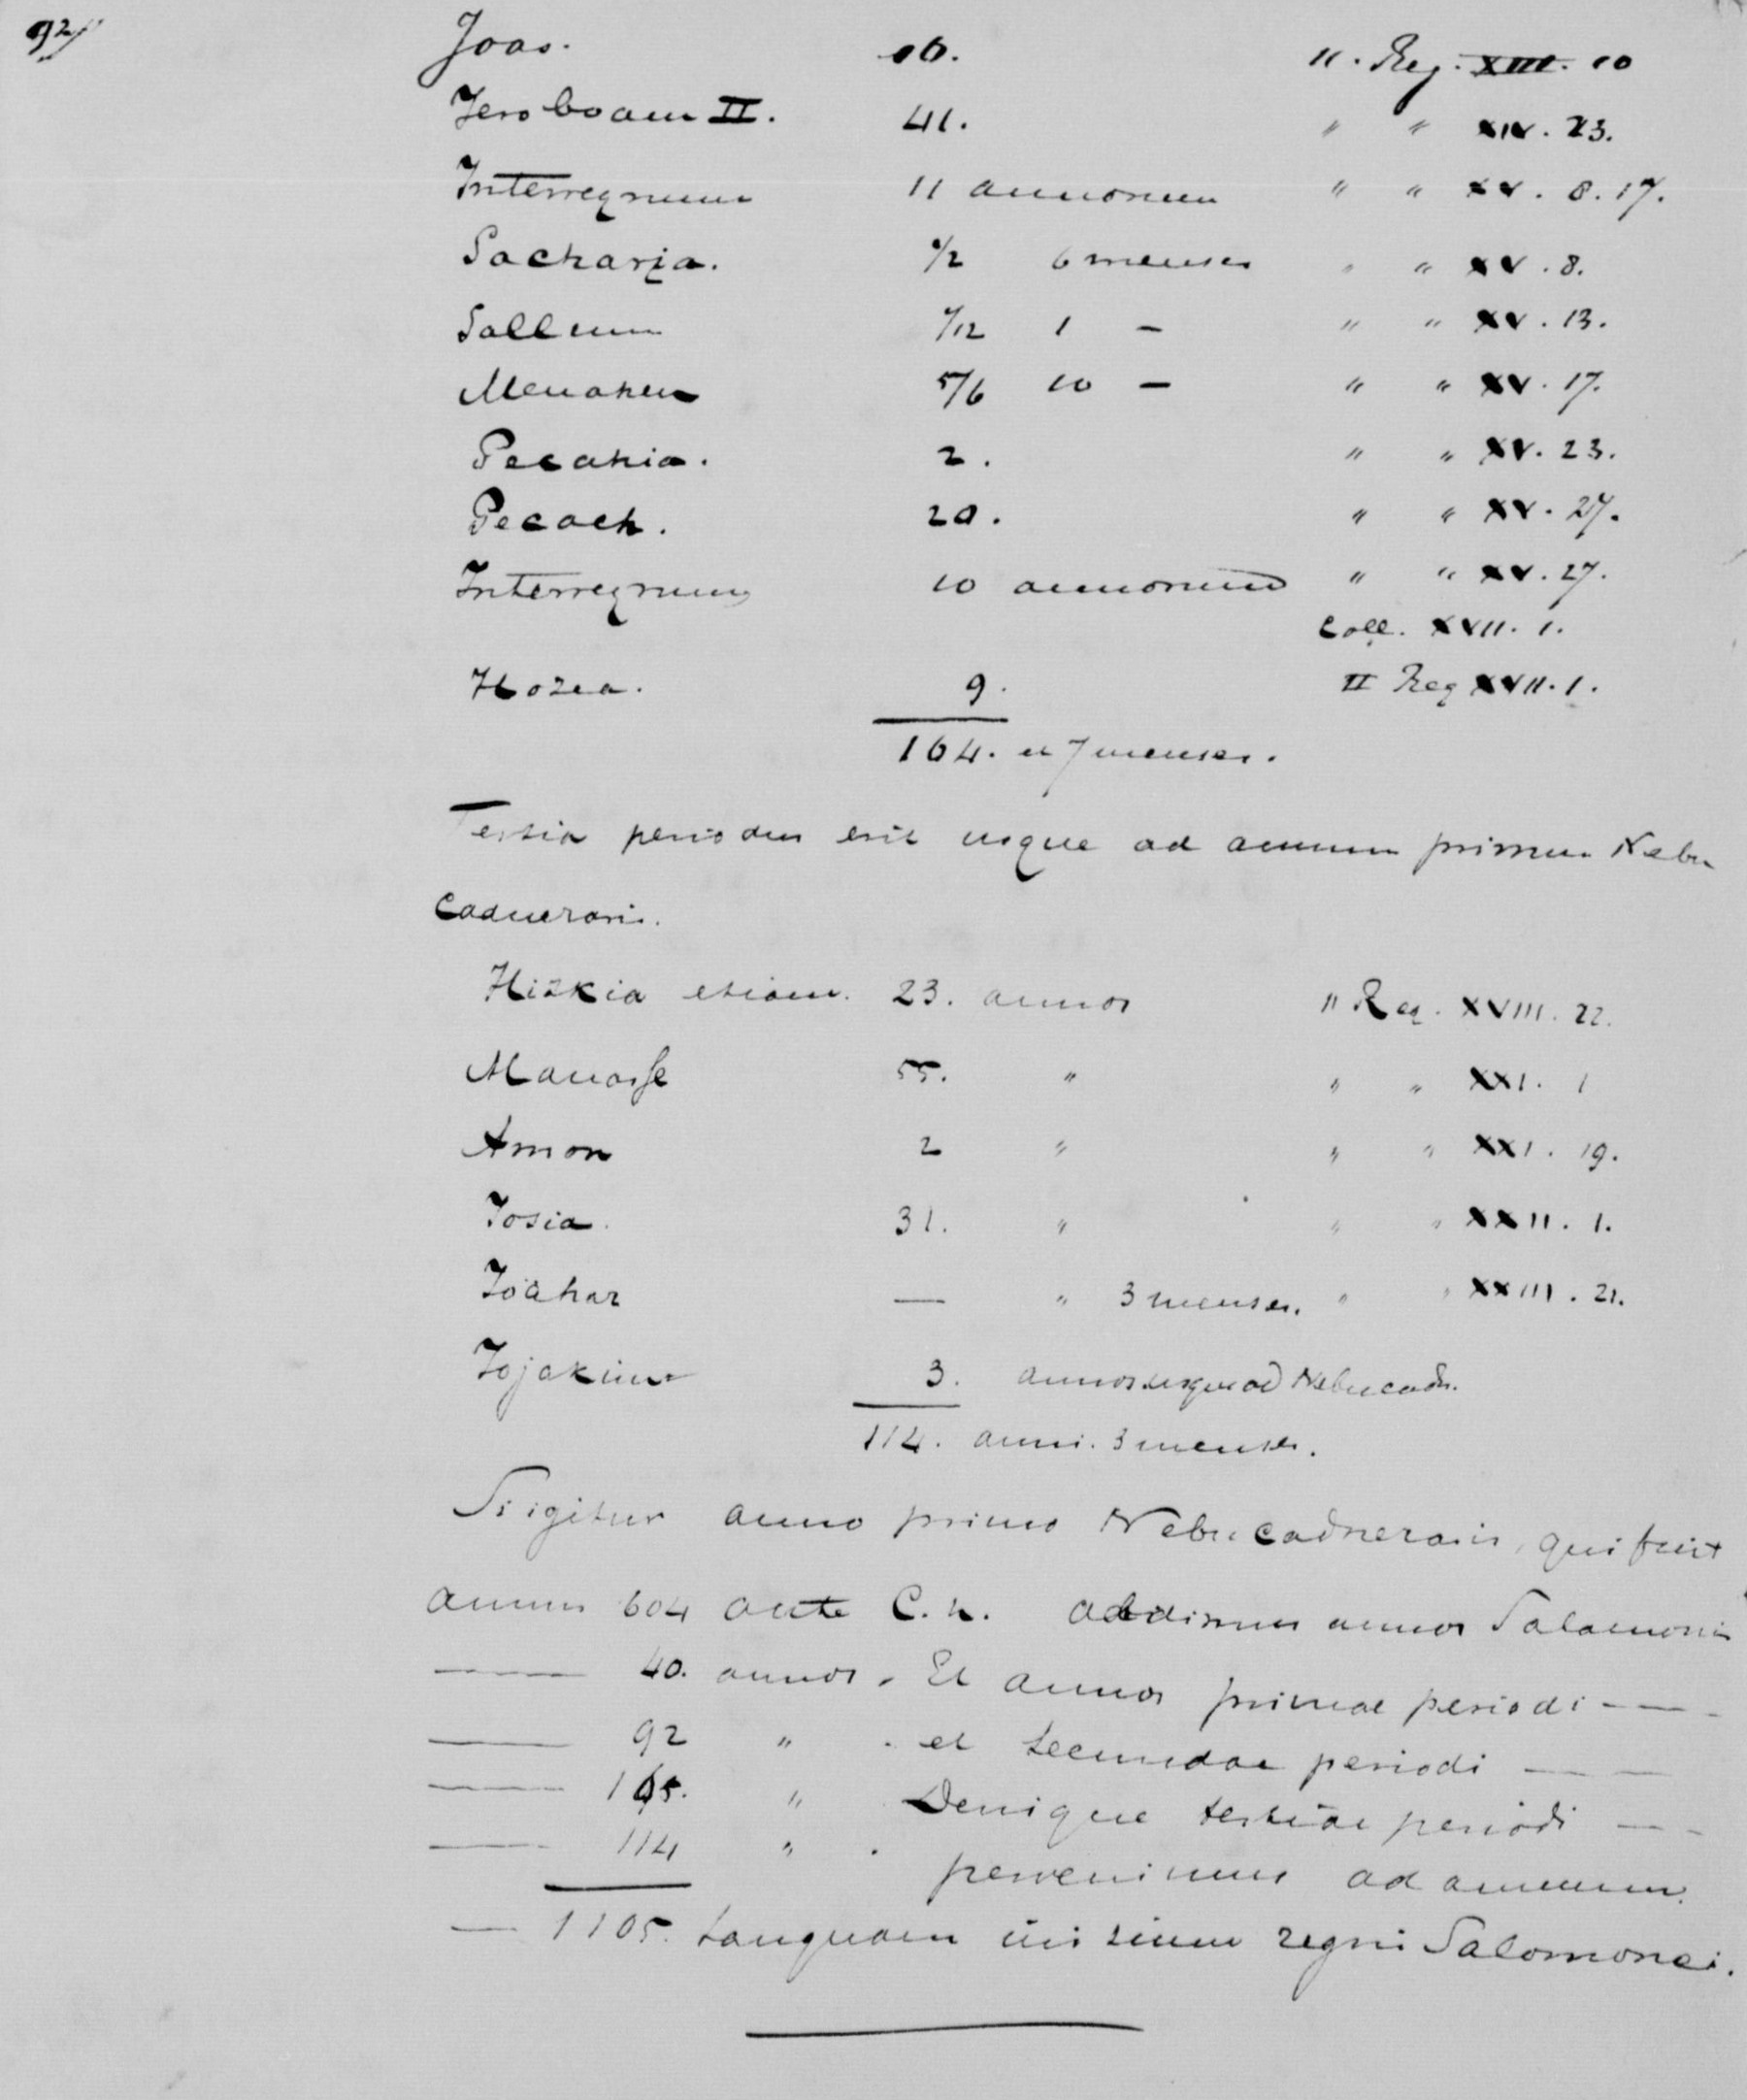 92/
Joas. 16. II. Reg. XIII. 10
Jeroboam II. 41. " " XIV. 23.
Interregnum 11 annorum " " XV. 8. 17.
Sacharja. 1/2 6 menses " " XV. 8.
Sallum 1/12 1 — " " XV. 13.
Menahem 5/6 10 — " " XV. 17.
Pecahia. 2. " " XV. 23.
Pecach. 20. " " XV. 27.
Interregnum 10 annorum " " XV. 27.
Coll. XVII. 1.
Hozea. 9. II Reg XVII. 1.
164. et 7 menses.
Tertia periodus erit usque ad annum primum Nebu
cadnezaris.
Hizkia etiam. 23. annos II Reg. XVIII. 22.
Manasse 55. " " " XXI. 1
Amon 2 " " " XXI. 19.
Josia. 31. " " " XXII. 1.
Joahaz — " 3 menses. " " XXIII. 21.
Jojakim 3. annos usque ad Nebucadn.
114. anni. 3 menses.
Si igitur anno primo Nebucadnezaris, qui fuit
annus 604 ante C. n. addimus annos Salamonis
—— 40. annos. Et annos primae periodi ——
—— 92 " . et secundae periodi ——
—— 165. " Denique tertiae periodi ——
—— 114 " . pervenimus ad annum.
— 1105. tanquam initium regni Salomonei.